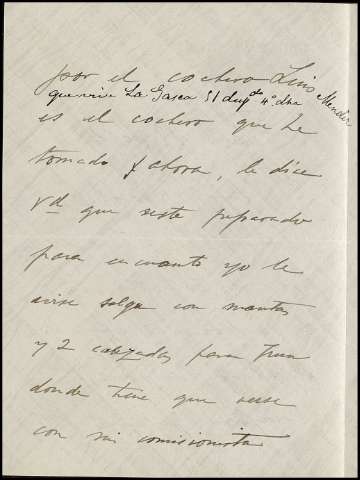 por el cochero Luis Mendez
que vive La Gasca 51 dupdo 4º dha
es el cochero que he
tomado y ahora, le dice
Vd que este preparado
para en cuanto yo le
avise salga con mantas
y 2 cabezadas para Irun
donde tiene que verse
con mi comisionista